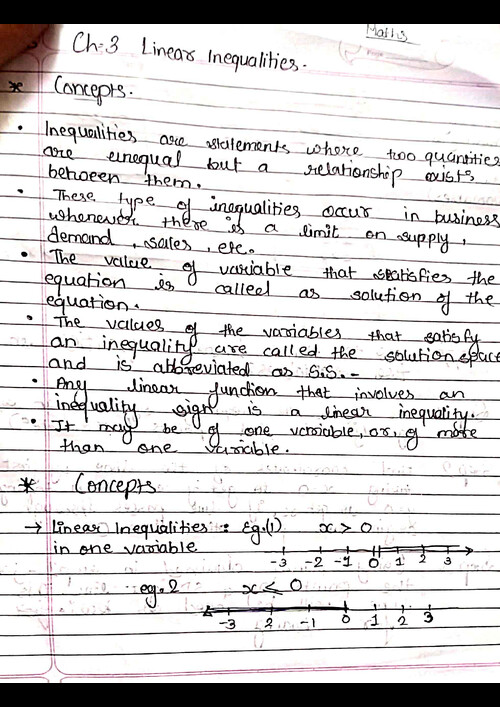 Maths
Ch:3 Linear Inequalities.
* Concepts.
• Inequalities are statements where two quantities
are unequal but a relationship exists
between them.
• These type of inequalities occur in business
whenever there is a limit on supply,
demand, sales, etc.
• The value of variable that satisfies the
equation is called as solution of the
equation.
• The values of the variables that satisfy
an inequality are called the solution space
and is abbreviated as S.S. -
• Any linear function that involves an
inequality sign is a linear inequality.
• It may be of one variable, or, of more
than one variable.
* Concepts
→ Linear Inequalities : Eg.(1) x > 0
in one variable
-3 -2 -1 0 1 2 3
eg. 2 x ≤ 0
-3 2 -1 0 1 2 3